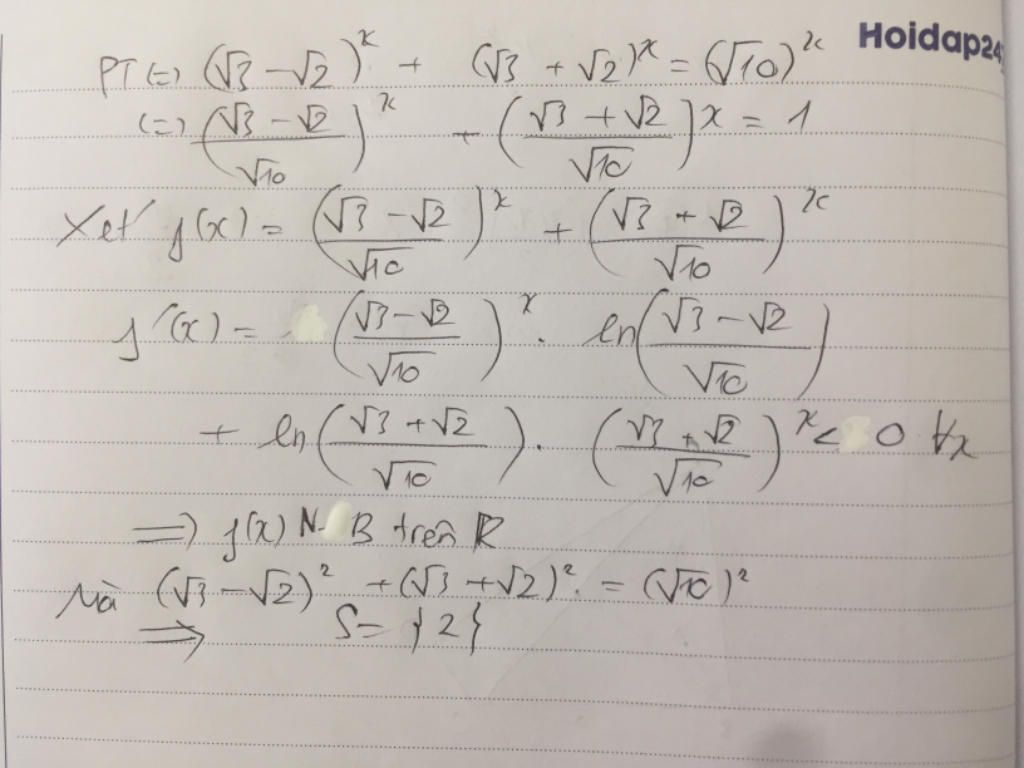 Hoidap247
PT (=) (√3 - √2)^x + (√3 + √2)^x = (√10)^x
(=) ((√3 - √2)/√10)^x + ((√3 + √2)/√10)^x = 1
Xét f(x) = ((√3 - √2)/√10)^x + ((√3 + √2)/√10)^x
f'(x) = ((√3 - √2)/√10)^x . ln((√3 - √2)/√10)
+ ln((√3 + √2)/√10) . ((√3 + √2)/√10)^x < 0 ∀x
=> f(x) N B trên R
Mà (√3 - √2)² + (√3 + √2)² = (√10)²
=> S = {2}